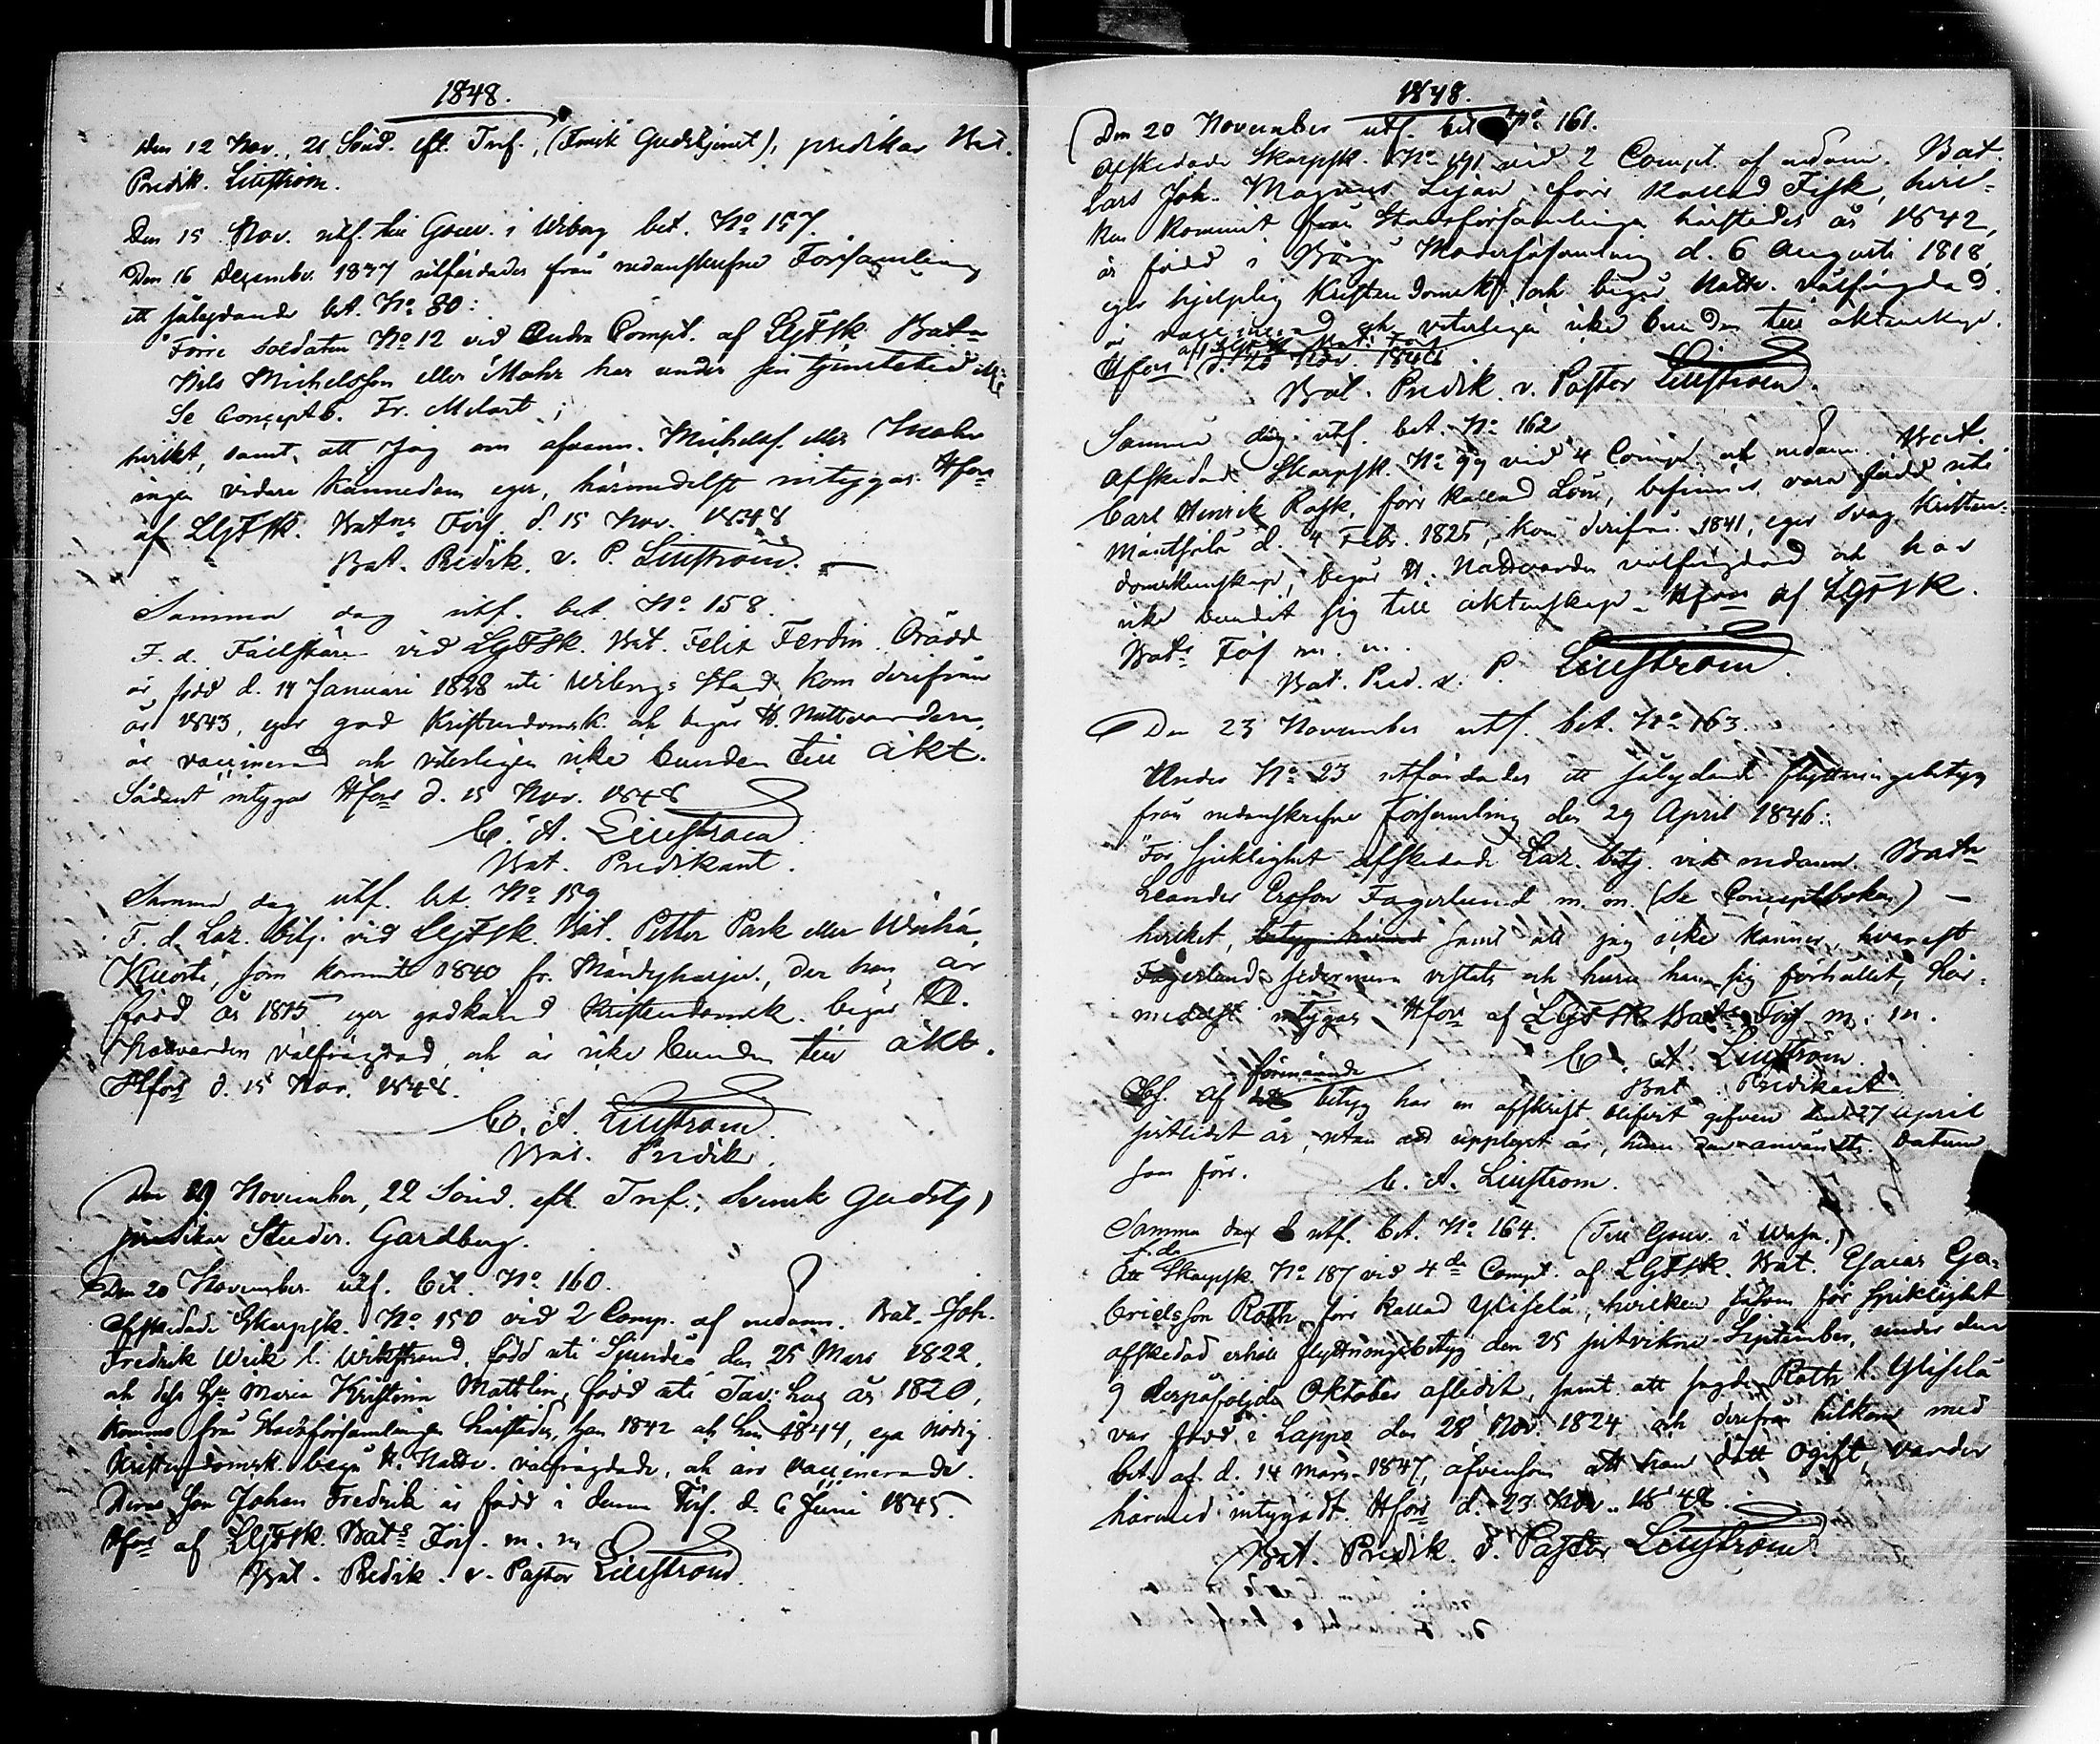 1848.
Den 12 Nov., 21 Sönd. eft. Tref., (Finsk Gudstjenst), predikar Bat.
Predik. Liljström.
Den 15 Nov. utf. till Gouv. i Wiborg bet. No 157.
Den 16 December 1847 utfärdades från nedanskrefne Församling
ett sålydande bet. No 80:
"Förre Soldaten No 12 vid Andra Compt. af LGFSk. Batn
Nils Michelsson eller Mohr har under sin tjenstetid
Se Conceptb. Fr. Melart;
hvilket, samt, att jag om ofvann. Michelss. eller Mohr
ingen vidare kännedom eger, härmedelst intygas. Hfors
af LGFSk. Batns Förs. d. 15 Nov. 1848
Bat. Predik. v. P. Liljström.
Samma dag utf. bet. No 158.
F. d. Fältskären vid LGFSk. Bat. Felix Ferdin. Orädd
är född d. 14 Januari 1828 uti Wiborgs Stad, kom derifrån
år 1843, eger god Kristendomsk. och begår H. Nattvarden,
är vaccinerad och veterligen icke bunden till äkt.
Sådant intygar Hfors d. 15 Nov. 1848
C. A. Liljström
Bat. Predikant.
Samma dag utf. bet. No 159
F. d. Laz. betj. vid LGFSk. Bat. Petter Park eller
som kommit 1840 fr. Mäntyharju, der han är
född år 1815 eger godkänd Kristendomsk. begår H.
Nattvarden välfrägdad, och är icke bunden till äkt.
Hfors d. 15 Nov. 1848.
C. A. Liljström
Bat. Predik.
Den 19 November, 22 Sönd. eft. Tref., Svensk Gudstj,
predikar Studer. Gardberg.
Den 20 November utf. bet. No 160.
Afskedade Skarpsk. No 150 vid 2 Comp. af nedann. Bat. Joh.
Fredrik Weik l. Wikstrand, född uti Sjundeå den 25 Mars 1822,
och dess Hu Maria Kristina Mattlin, född uti Tav: hus år 1820,
komne från Stadsförsamlingen härstädes, han 1842 och hon 1844, ega nödig
Kristendomsk. begå H. Nattv. välfrägdade, och äro vaccinerade.
Deras son Johan Fredrik är född i denna Förs. d. 6 Juni 1845.
Hfors af LGFSk. Bats Förs. m. m
Bat. Predik. v. Pastor Liljström.
1848.
Den 20 November utf. bet No 161.
Afskedade Skarpsk. No 191 vid 2 Compt. af nedann. Bat.
Lars Joh. Magnus Lejon, förr kallad Fisk, hvil-
ken kommit från Stadsförsamlingen härstädes år 1842,
är född i Borgå Moderförsamling d. 6 Augusti 1818,
eger hjelplig Kristendomsk, och begår Nattv. välfrägdad.
är vaccinerad och veterligen icke bunden till äktenskap.
Hfors d. 20 Nov 1848
Bat. Predik. v. Pastor Liljström.
Samma dag utf. bet. No 162
Afskedade Skarpsk. No 99 vid 4 Compt. af nedann. Bat.
Carl Henrik Rask, förr kallad Löv, befinnes vara född uti
Mäntsälä d. 4 Febr. 1825, kom derifrån 1841, eger svag Kristen-
domskunskap, begår H. Nattvarden välfrägdad och har
icke bundit sig till äktenskap. Hfors af LGFSk.
Bats Förs m. m.
Bat. Pred. v. P. Liljström.
Den 23 November utf. bet. No 163.
Under No 23 utfärdades ett sålydande flyttningsbetyg
från nedanskrefne Församling den 29 April 1846:
"För sjuklighet afskedade Laz. betj. vid nedann. Batn
Leander Ersson Fagerlund m. m. (Se Conceptboken) —
hvilket, samt att jag icke känner, hvarest
Fagerlund sedermera vistats och huru han sig förhållit, här-
medelst intygas. Hfors af LGFSk. Batns Förs m. m.
C. A. Liljström
Bat. Predikant
Obs. Af förenämnde betyg har en afskrift blifvit gifven den 27 April
sistlidet år, utan att upplyst är, huru den använts. Datum
som förr.
C. A. Liljström.
Samma dag utf. bet. No 164. (Till Gouv. i Wasa.)
Att f. d. Skarpsk. No 187 vid 4de Compt. af LGFSk. Bat. Esaias Ga-
brielsson Roth, förr kallad Ylisela, hvilken såsom för sjuklighet
afskedad erhöll flyttningsbetyg den 25 sistvikne September, under den
9 derpåföljde Oktober aflidit, samt att sagde Roth l. Ylisela
var född i Lappo den 28 Nov. 1824 och derifrån hitkom med
bet. af d. 14 Mars 1847, äfvensom att han dött ogift, varder
härmed intygadt. Hfors d. 23 Nov. 1848.
Bat. Predik. v. Pastor Liljström.